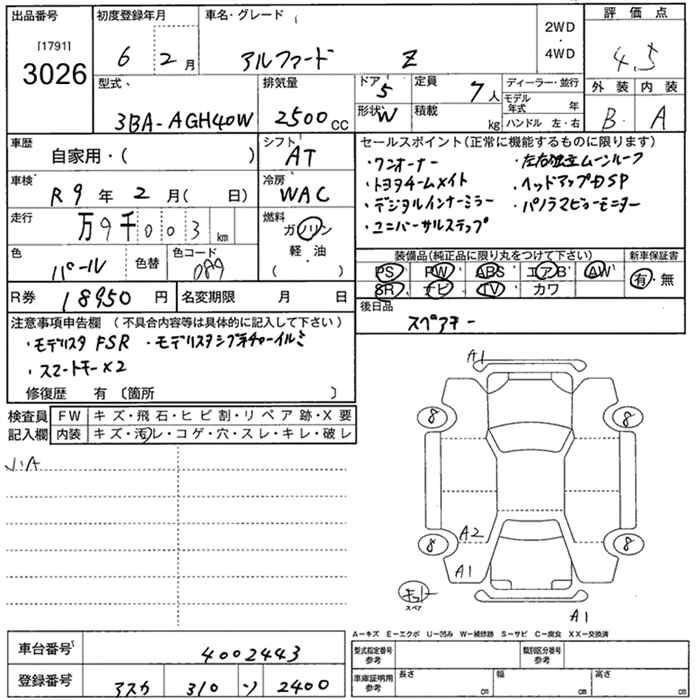 出品番号
[1791]
3026
初度登録年月
6 2月
車名・グレード
アルファード Z
2WD
・
4WD
評価点
4.5
外装 内装
B A
型式
3BA-AGH40W
排気量
2500cc
ドア 5
形状 W
定員 7人
積載 kg
ディーラー・並行
モデル年式 年
ハンドル 左・右
車歴
自家用・( )
シフト
AT
車検
R9年2月( 日)
冷房
WAC
走行
万9千003km
燃料
ガソリン
軽・油
( ・ )
色
パール
色替
色コード
089
R券 18950円
名変期限 月 日
セールスポイント(正常に機能するものに限ります)
・ワンオーナー ・左右独立ムーンルーフ
・トヨタチームメイト ・ヘッドアップDSP
・デジタルインナーミラー ・パノラマビューモニター
・ユニバーサルステップ
装備品(純正品に限り丸をつけて下さい)
PS PW ABS エアB AW
SR ナビ TV カワ
新車保証書
有・無
後日品
スペアキー
注意事項申告欄(不具合内容等は具体的に記入して下さい)
・モデリスタFSR ・モデリスタシグネチャーイルミ
・スマートキー×2
修復歴 有〔箇所 〕
検査員記入欄
FW キズ・飛石・ヒビ割・リペア跡・X要
内装 キズ・汚レ・コゲ・穴・スレ・キレ・破レ
A1
8 8
A2
8 8
A1
キット
スペア
A1
A-キズ E-エクボ U-凹み W-補修跡 S-サビ C-腐食 XX-交換済
車台番号
4002443
登録番号
アスカ 310 ソ 2400
型式指定番号
参考
類別区分番号
参考
車庫証明用
参考
長さ cm
幅 cm
高さ cm